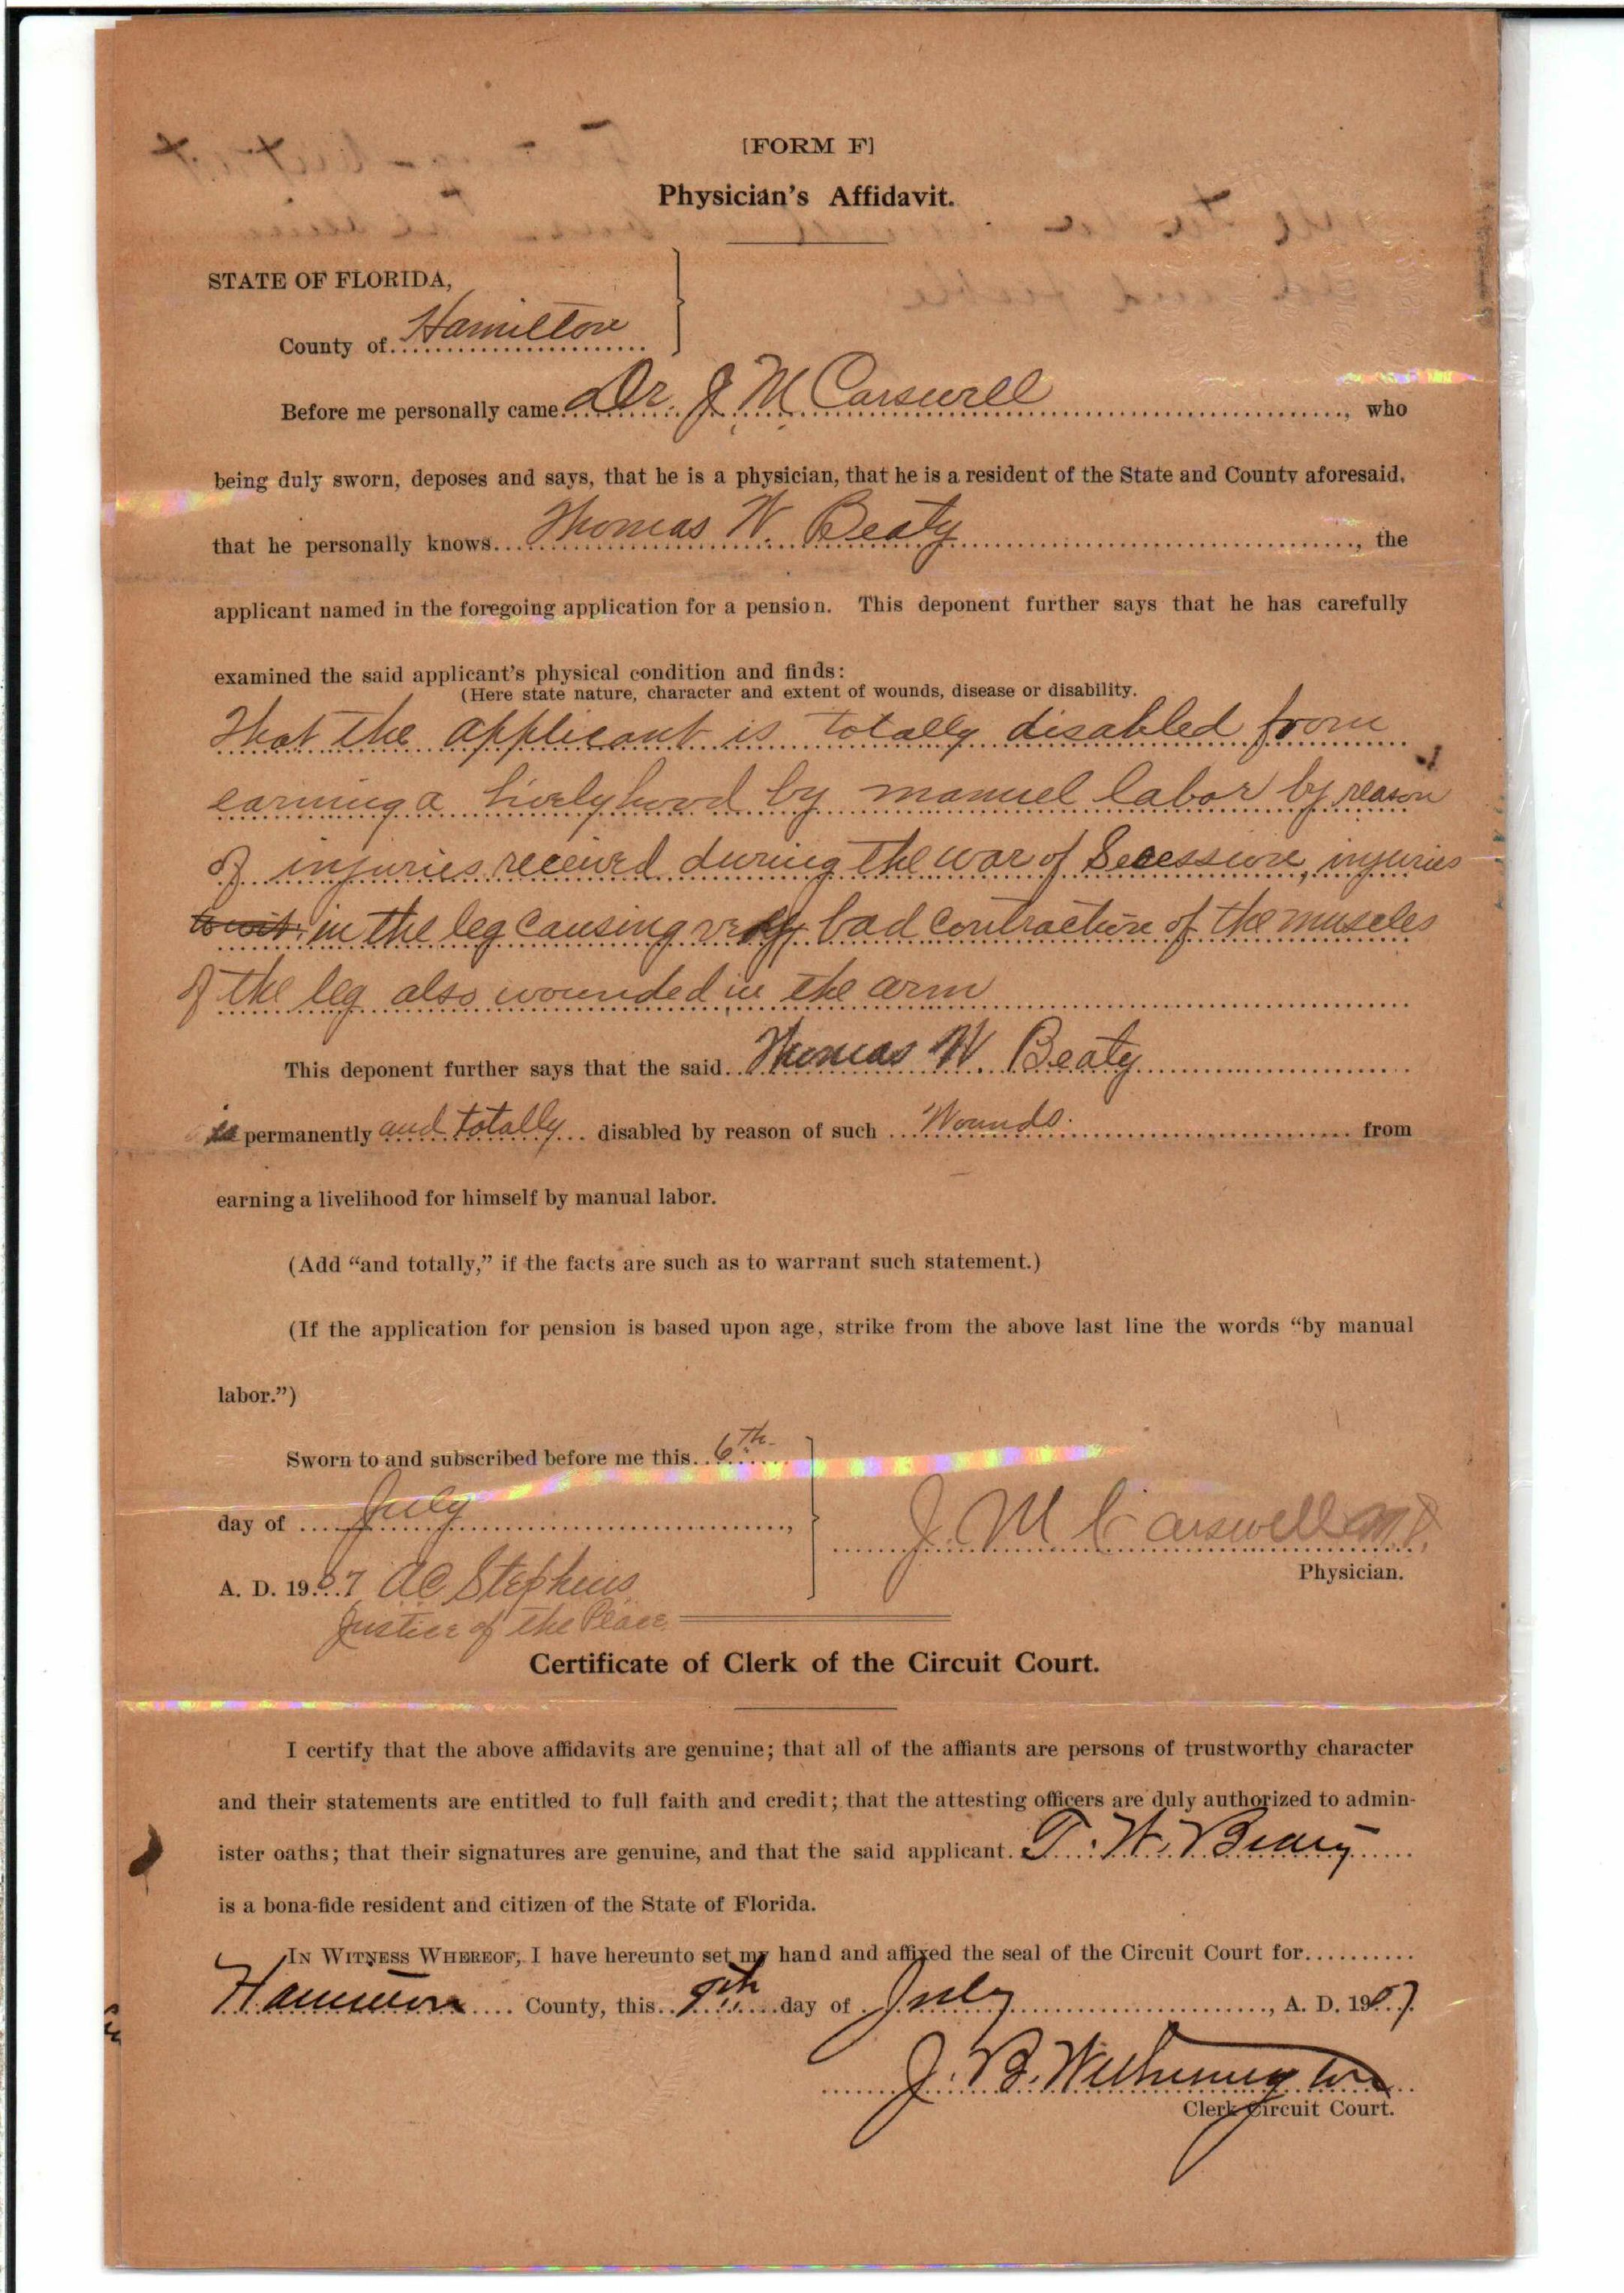 [FORM F]
Physician's Affidavit.
STATE OF FLORIDA,
County of Hamilton
Before me personally came Dr. J M Carswell, who
being duly sworn, deposes and says, that he is a physician, that he is a resident of the State and County aforesaid,
that he personally knows Thomas W. Beaty, the
applicant named in the foregoing application for a pension. This deponent further says that he has carefully
examined the said applicant's physical condition and finds:
(Here state nature, character and extent of wounds, disease or disability.
That the applicant is totally disabled from
earning a livelyhood by manuel labor by reason
of injuries received during the war of Secession, injuries
to wit: in the leg causing very bad contraction of the muscles
of the leg also wounded in the arm
This deponent further says that the said Thomas W. Beaty
is permanently and totally disabled by reason of such Wounds. from
earning a livelihood for himself by manual labor.
(Add "and totally," if the facts are such as to warrant such statement.)
(If the application for pension is based upon age, strike from the above last line the words "by manual
labor.")
Sworn to and subscribed before me this 6th
day of July,
J. M Carswell M.D.
A. D. 1907 A C Stephens
Physician.
Justice of the Peace
Certificate of Clerk of the Circuit Court.
I certify that the above affidavits are genuine; that all of the affiants are persons of trustworthy character
and their statements are entitled to full faith and credit; that the attesting officers are duly authorized to admin-
ister oaths; that their signatures are genuine, and that the said applicant T. W. Beaty
is a bona-fide resident and citizen of the State of Florida.
IN WITNESS WHEREOF, I have hereunto set my hand and affixed the seal of the Circuit Court for
Hamilton County, this 9th day of July, A. D. 1907.
J. B. Witherington
Clerk Circuit Court.